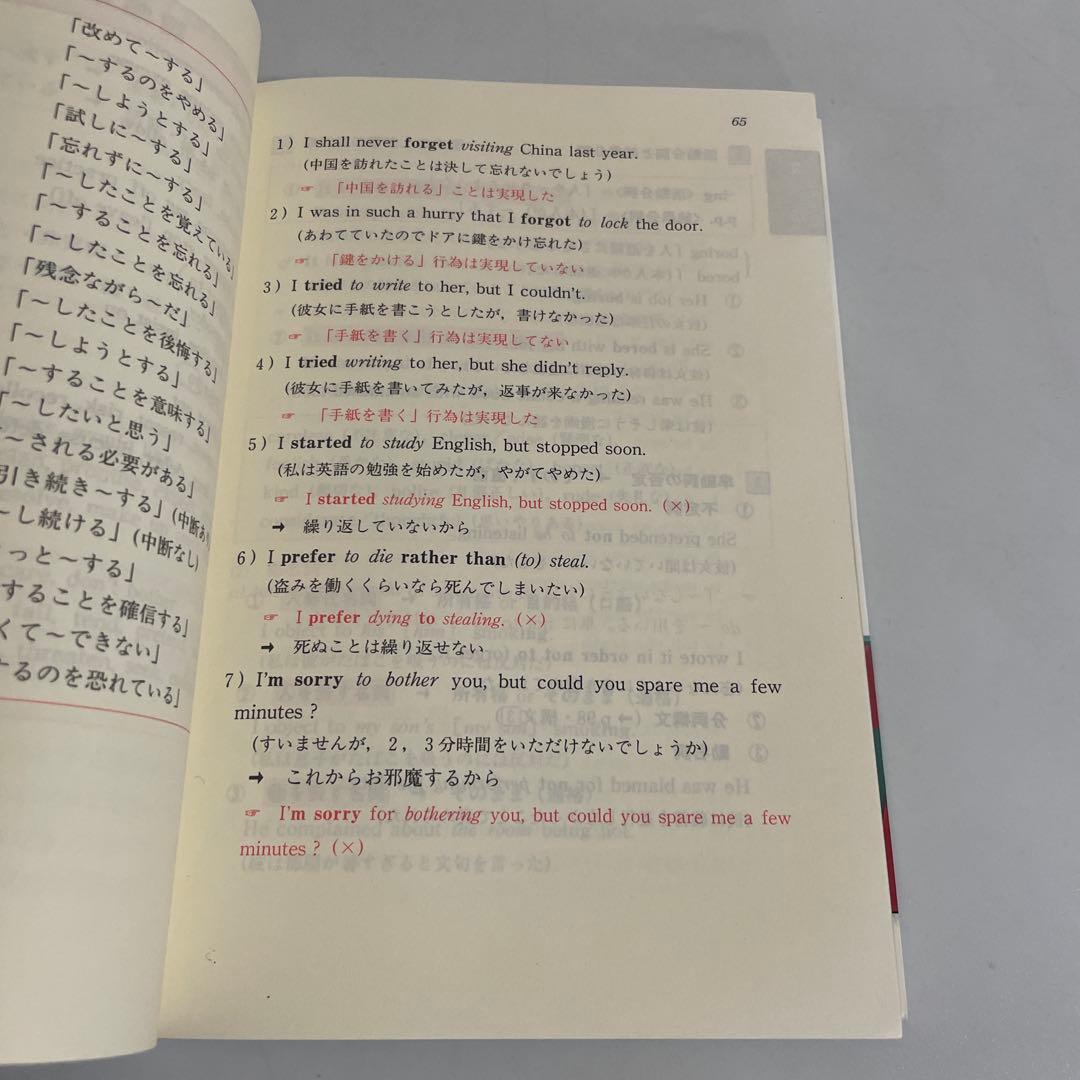 「改めて～する」
「～するのをやめる」
「～しようとする」
「試しに～する」
「忘れずに～する」
「～したことを覚えている」
「～することを忘れる」
「～したことを忘れる」
「残念ながら～だ」
「～したことを後悔する」
「～しようとする」
「～することを意味する」
「～したいと思う」
「～される必要がある」
引き続き～する」(中断あり)
～し続ける」(中断なし)
っと～する」
することを確信する」
くて～できない」
するのを恐れている」
65
1) I shall never forget visiting China last year.
(中国を訪れたことは決して忘れないでしょう)
☞ 「中国を訪れる」ことは実現した
2) I was in such a hurry that I forgot to lock the door.
(あわてていたのでドアに鍵をかけ忘れた)
☞ 「鍵をかける」行為は実現していない
3) I tried to write to her, but I couldn't.
(彼女に手紙を書こうとしたが，書けなかった)
☞ 「手紙を書く」行為は実現してない
4) I tried writing to her, but she didn't reply.
(彼女に手紙を書いてみたが，返事が来なかった)
☞ 「手紙を書く」行為は実現した
5) I started to study English, but stopped soon.
(私は英語の勉強を始めたが，やがてやめた)
☞ I started studying English, but stopped soon. (×)
→ 繰り返していないから
6) I prefer to die rather than (to) steal.
(盗みを働くくらいなら死んでしまいたい)
☞ I prefer dying to stealing. (×)
→ 死ぬことは繰り返せない
7) I'm sorry to bother you, but could you spare me a few
minutes ?
(すいませんが，2，3分時間をいただけないでしょうか)
→ これからお邪魔するから
☞ I'm sorry for bothering you, but could you spare me a few
minutes ? (×)